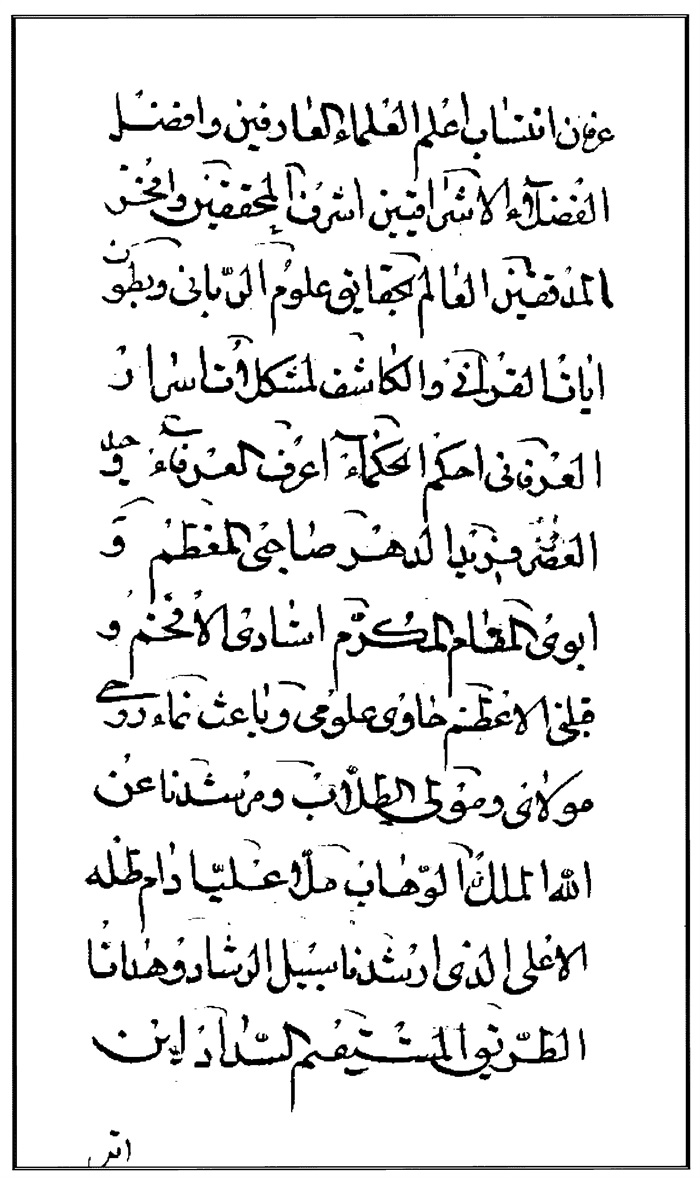 عرفان انتساب اعلم العلماء العارفین و افضل
الفضلاء الاشراقیین اشرف المحققین و افخر
المدققین العالم بحقایق علوم الربانی و بطون
ایات القرانی و الکاشف لمشکلات اسرار
العرفانی احکم الحکماء اعرف العرفاء وحید
العصر و فرید الدهر صاحبی المعظم و
ابوی المقام المکرم استادی الافخم و
قبلتی الاعظم حاوی علومی و باعث نماء روحی
مولائی و مولی الطلاب و مرشدنا عن
الله الملک الوهاب ملا علیا دام ظله
الاعلی الذی ارشدنا سبیل الرشاد و هدانا
الطریق المستقیم السداد این